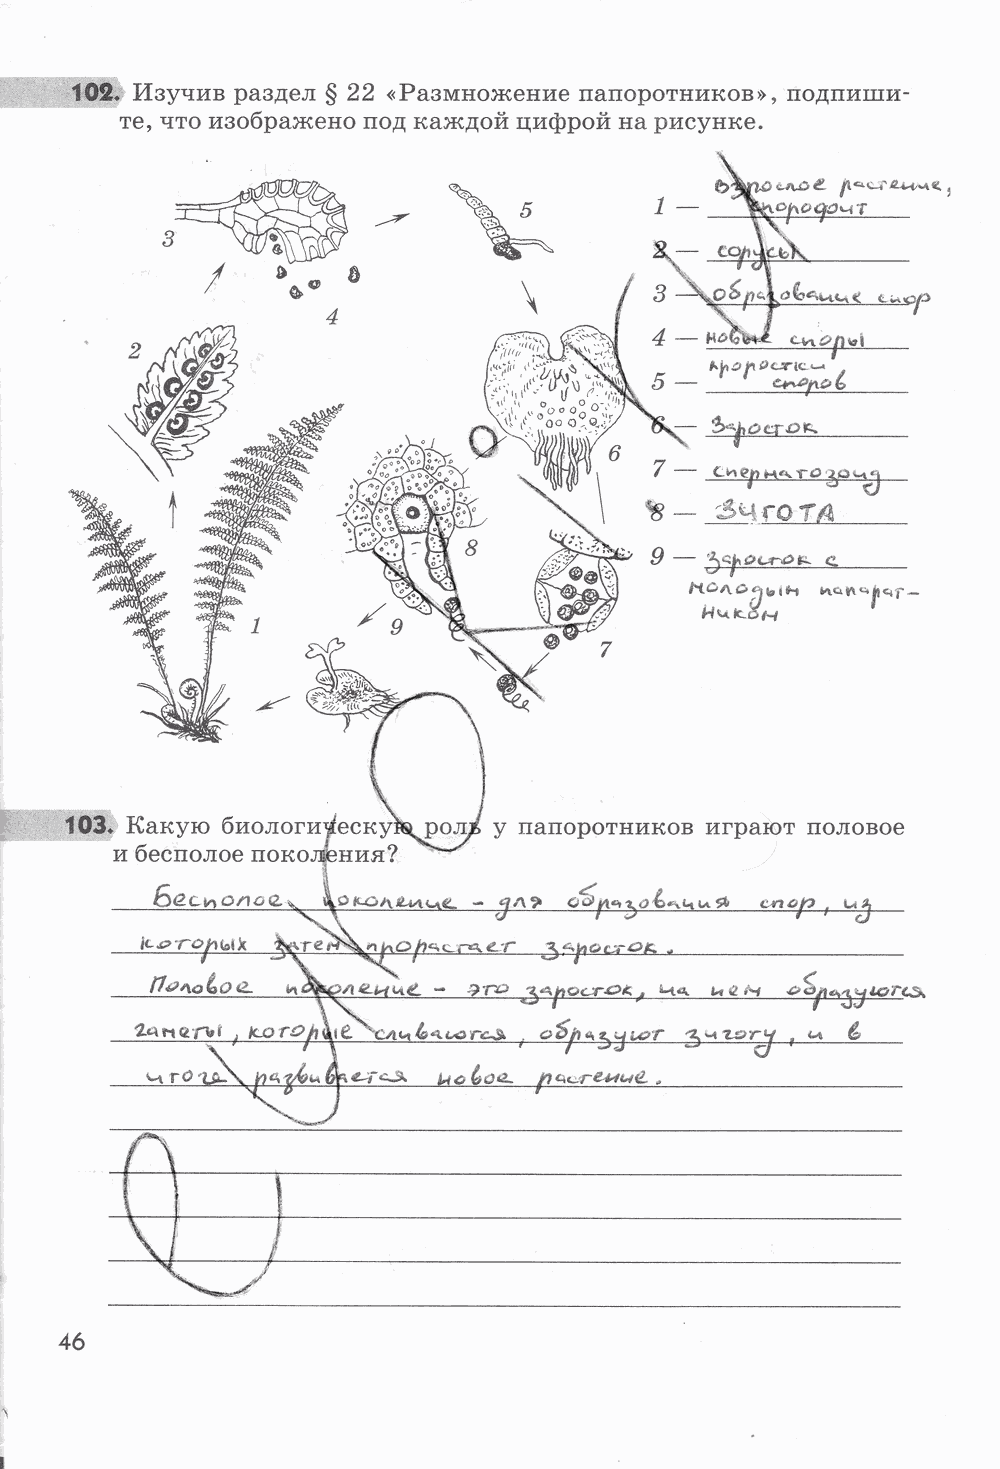 102. Изучив раздел § 22 «Размножение папоротников», подпиши-
те, что изображено под каждой цифрой на рисунке.
3
4
5
2
1
6
8
9
7
1 — взрослое растение,
спорофит
2 — сорусы
3 — образование спор
4 — новые споры
5 — проростки
споров
6 — Заросток
7 — сперматозоид
8 — ЗИГОТА
9 — заросток с
молодым папарат-
ником
103. Какую биологическую роль у папоротников играют половое
и бесполое поколения?
Бесполое поколение - для образования спор, из
которых затем прорастает заросток.
Половое поколение - это заросток, на нем образуются
гаметы, которые сливаются, образуют зиготу, и в
итоге развивается новое растение.
46